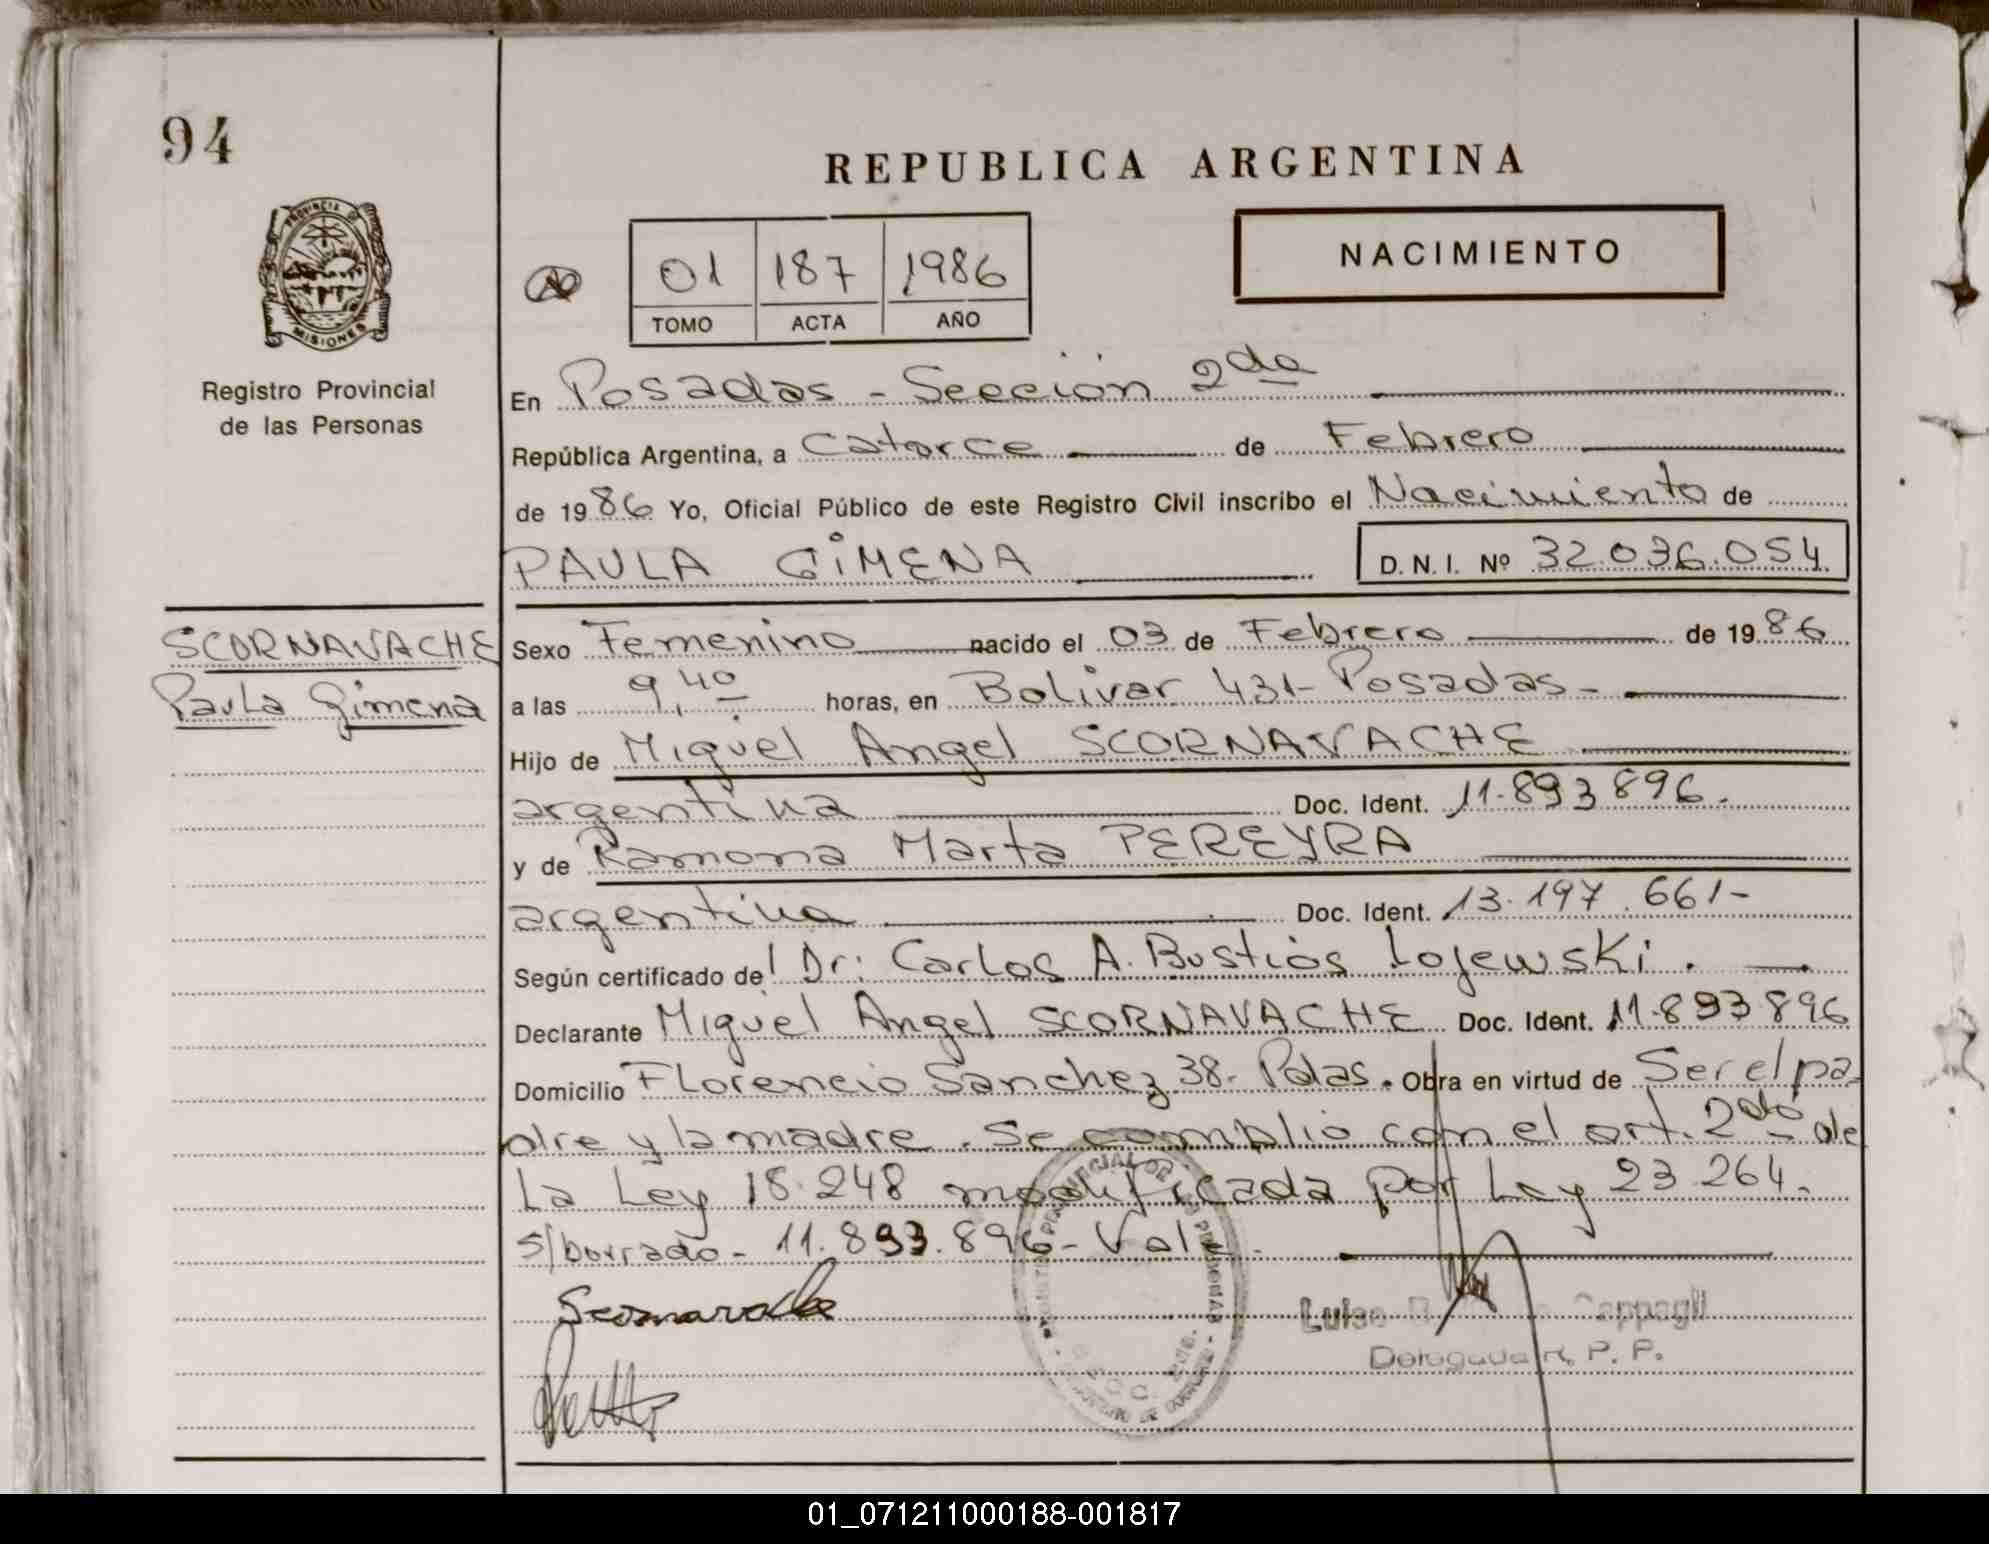 94
REPUBLICA ARGENTINA
PROVINCIA DE
MISIONES
Registro Provincial
de las Personas
01 187 1986
TOMO ACTA AÑO
NACIMIENTO
En Posadas - Sección 2da
República Argentina, a Catorce de Febrero
de 1986 Yo, Oficial Público de este Registro Civil inscribo el Nacimiento de
PAULA GIMENA D. N. I. Nº 32.036.054
SCORNAVACHE
Paula Gimena
Sexo Femenino nacido el 03 de Febrero de 1986
a las 9,40 horas, en Bolivar 431- Posadas -
Hijo de Miguel Angel SCORNAVACHE
argentina Doc. Ident. 11.893.896.
y de Ramona Marta PEREYRA
argentina Doc. Ident. 13.197.661-
Según certificado del Dr: Carlos A. Bustios Lojewski.
Declarante Miguel Angel SCORNAVACHE Doc. Ident. 11.893.896
Domicilio Florencio Sanchez 38- Pdas. Obra en virtud de Ser el pa-
dre y la madre. Se cumplio con el art. 2do de
La Ley 18.248 modificada por Ley 23.264.
s/borrado - 11.893.896 - Vale.
Scornavache
Luisa Cappagli
Delegada R. P. P.
01_071211000188-001817